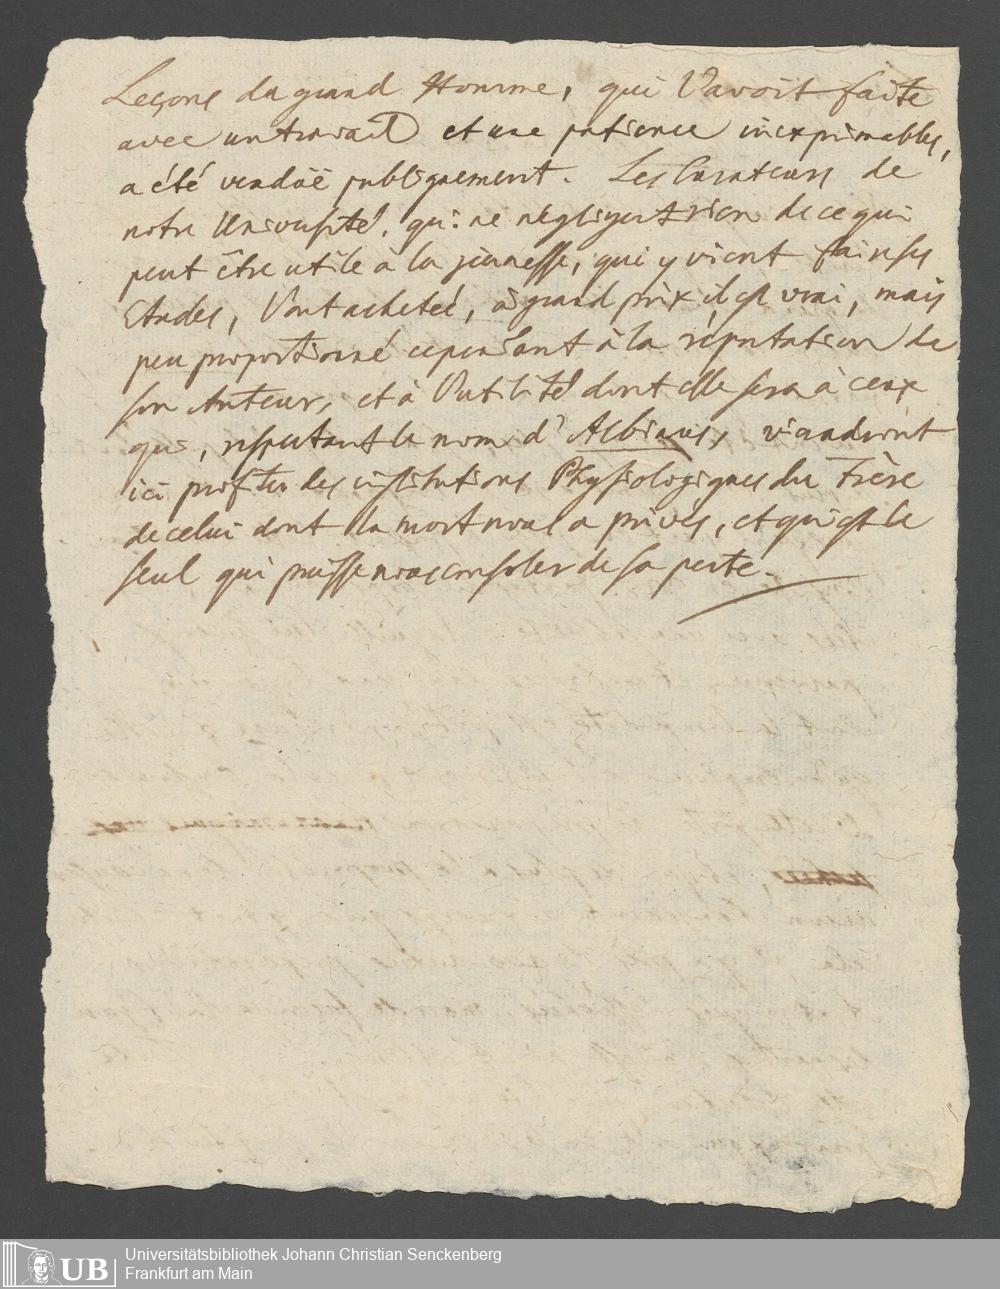 Leçons du grand Homme, qui l'avoit faite
avec un travail et une patience inexprimables,
a été vendüe publiquement. Les Curateurs de
notre Université, qui ne négligent rien de ce qui
peut être utile à la jeunesse, qui y vient faire ses
Etudes, l'ont achetée, à grand prix il est vrai, mais
peu proportionné cependant à la réputation de
son Auteur, et à l'utilité dont elle sera à ceux
qui, respectant le nom d'Albinus, viendront
ici profiter des institutions Physiologiques du Frère
de celui dont la mort nous a privés, et qui est le
seul qui puisse nous consoler de sa perte.
UB Universitätsbibliothek Johann Christian Senckenberg
Frankfurt am Main